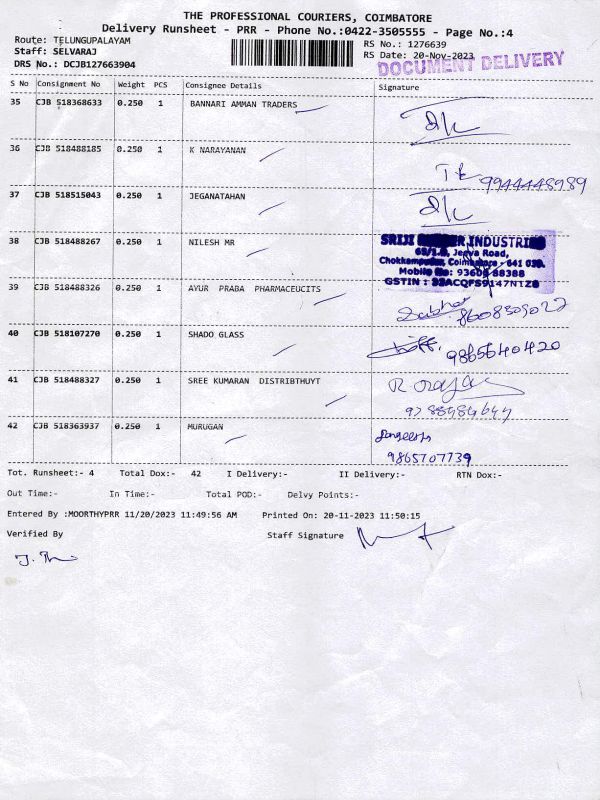 THE PROFESSIONAL COURIERS, COIMBATORE
Delivery Runsheet - PRR - Phone No.:0422-3505555 - Page No.:4
Route: TELUNGUPALAYAM
RS No.: 1276639
Staff: SELVARAJ
RS Date: 20-Nov-2023
DRS No.: DCJB127663904
DOCUMENT DELIVERY
S No Consignment No Weight PCS Consignee Details Signature
35 CJB 518368633 0.250 1 BANNARI AMMAN TRADERS
36 CJB 518488185 0.250 1 K NARAYANAN
9944448989
37 CJB 518515043 0.250 1 JEGANATAHAN
38 CJB 518488267 0.250 1 NILESH MR
SRIJI INDUSTRIES
Jeeva Road,
Coimbatore - 641
Mobile No: 93608 88388
GSTIN : 33ACQFS9147N1Z8
39 CJB 518488326 0.250 1 AYUR PRABA PHARMACEUCITS
8608309022
40 CJB 518107270 0.250 1 SHADO GLASS
9865640420
41 CJB 518488327 0.250 1 SREE KUMARAN DISTRIBTHUYT
42 CJB 518363937 0.250 1 MURUGAN
9865707739
Tot. Runsheet:- 4 Total Dox:- 42 I Delivery:- II Delivery:- RTN Dox:-
Out Time:- In Time:- Total POD:- Delvy Points:-
Entered By :MOORTHYPRR 11/20/2023 11:49:56 AM Printed On: 20-11-2023 11:50:15
Verified By Staff Signature